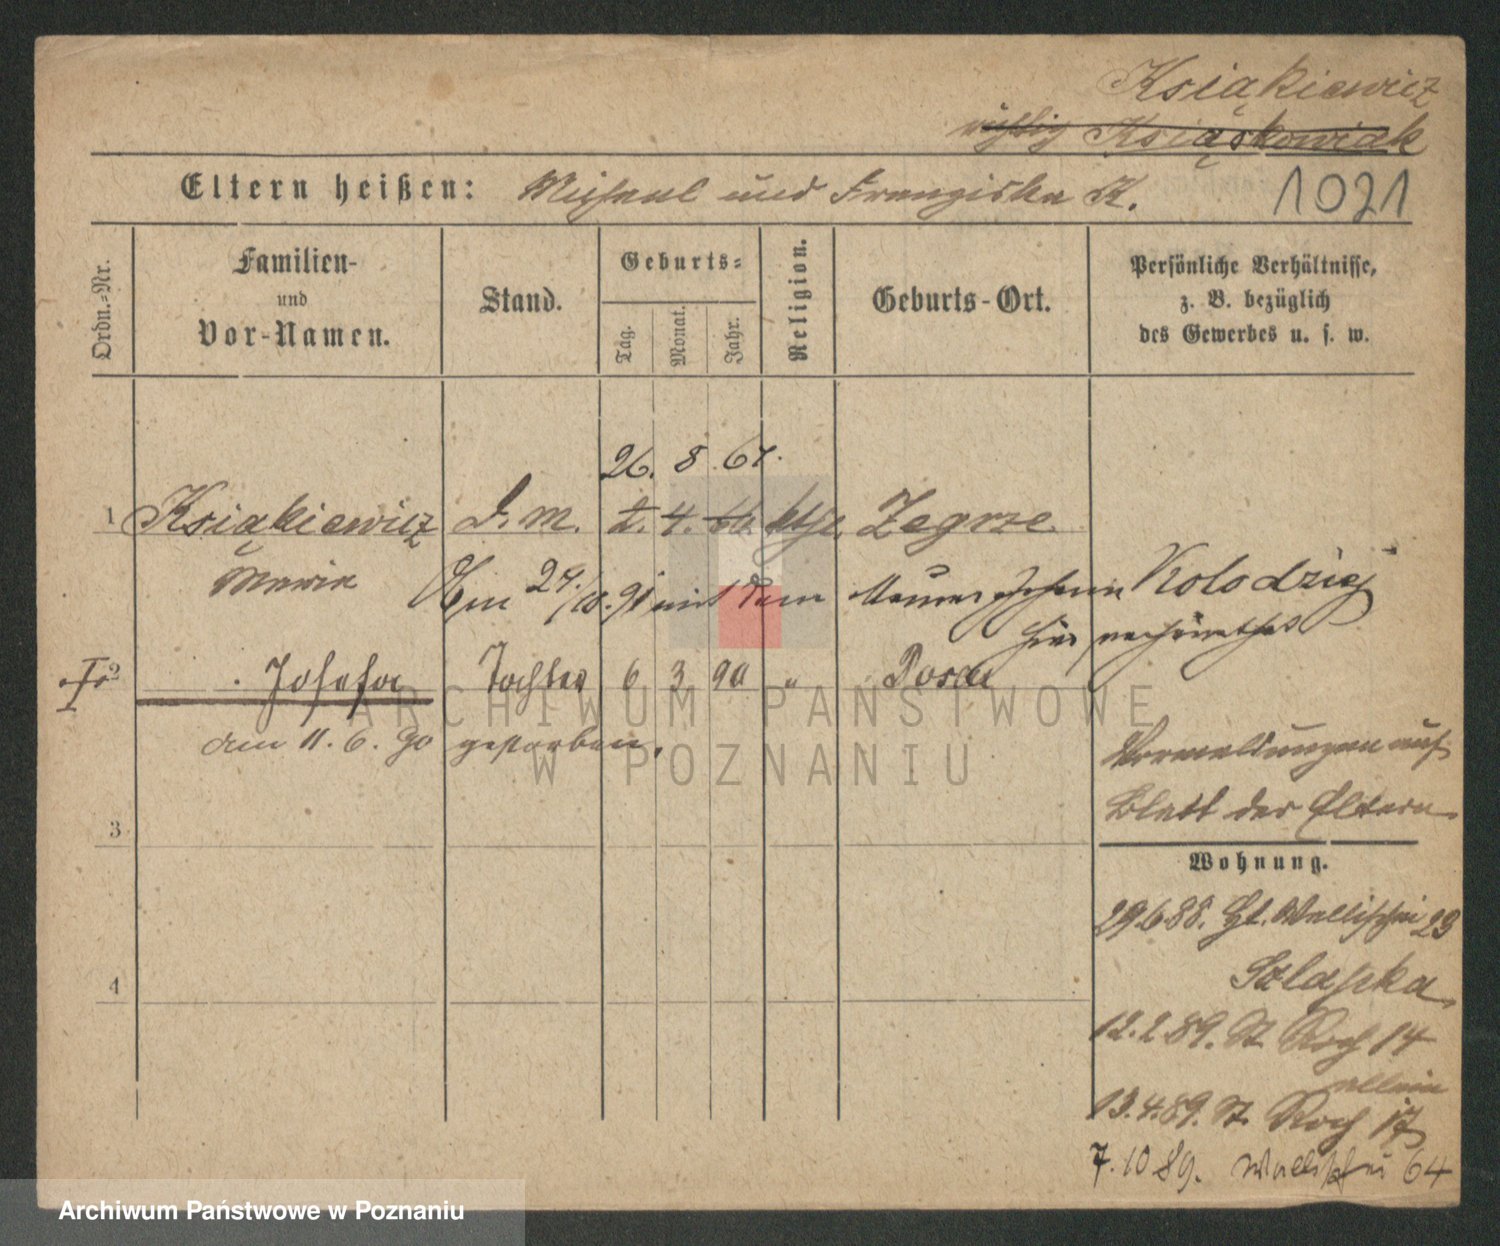 Książkiewicz
richtig Książkowiak
Eltern heißen: Michael und Franziska K. 1021
Ordn.-Nr.
Familien-
und
Vor-Namen.
Stand.
Geburts-
Tag.
Monat.
Jahr.
Religion.
Geburts-Ort.
Persönliche Verhältnisse,
z. B. bezüglich
des Gewerbes u. s. w.
26. 8. 67.
1 Ksiąkiewicz D. M. 2. 4. 66. kth. Zegrze
Maria
Am 24./10. 91 mit dem Maurer Johann Kolodziej
hier verheirathet
2 Josefa Tochter 6 3 90 " Posen
am 11. 6. 90 gestorben.
Vermeldungen auf
Blatt der Eltern.
3
Wohnung.
29.6.88. Gt. Wallischei 23
4
12.2.89. St. Roch 14
allein
13.4.89. St. Roch 17
7.10 89. Wallischei 64
ARCHIWUM PAŃSTWOWE
W POZNANIU
Archiwum Państwowe w Poznaniu